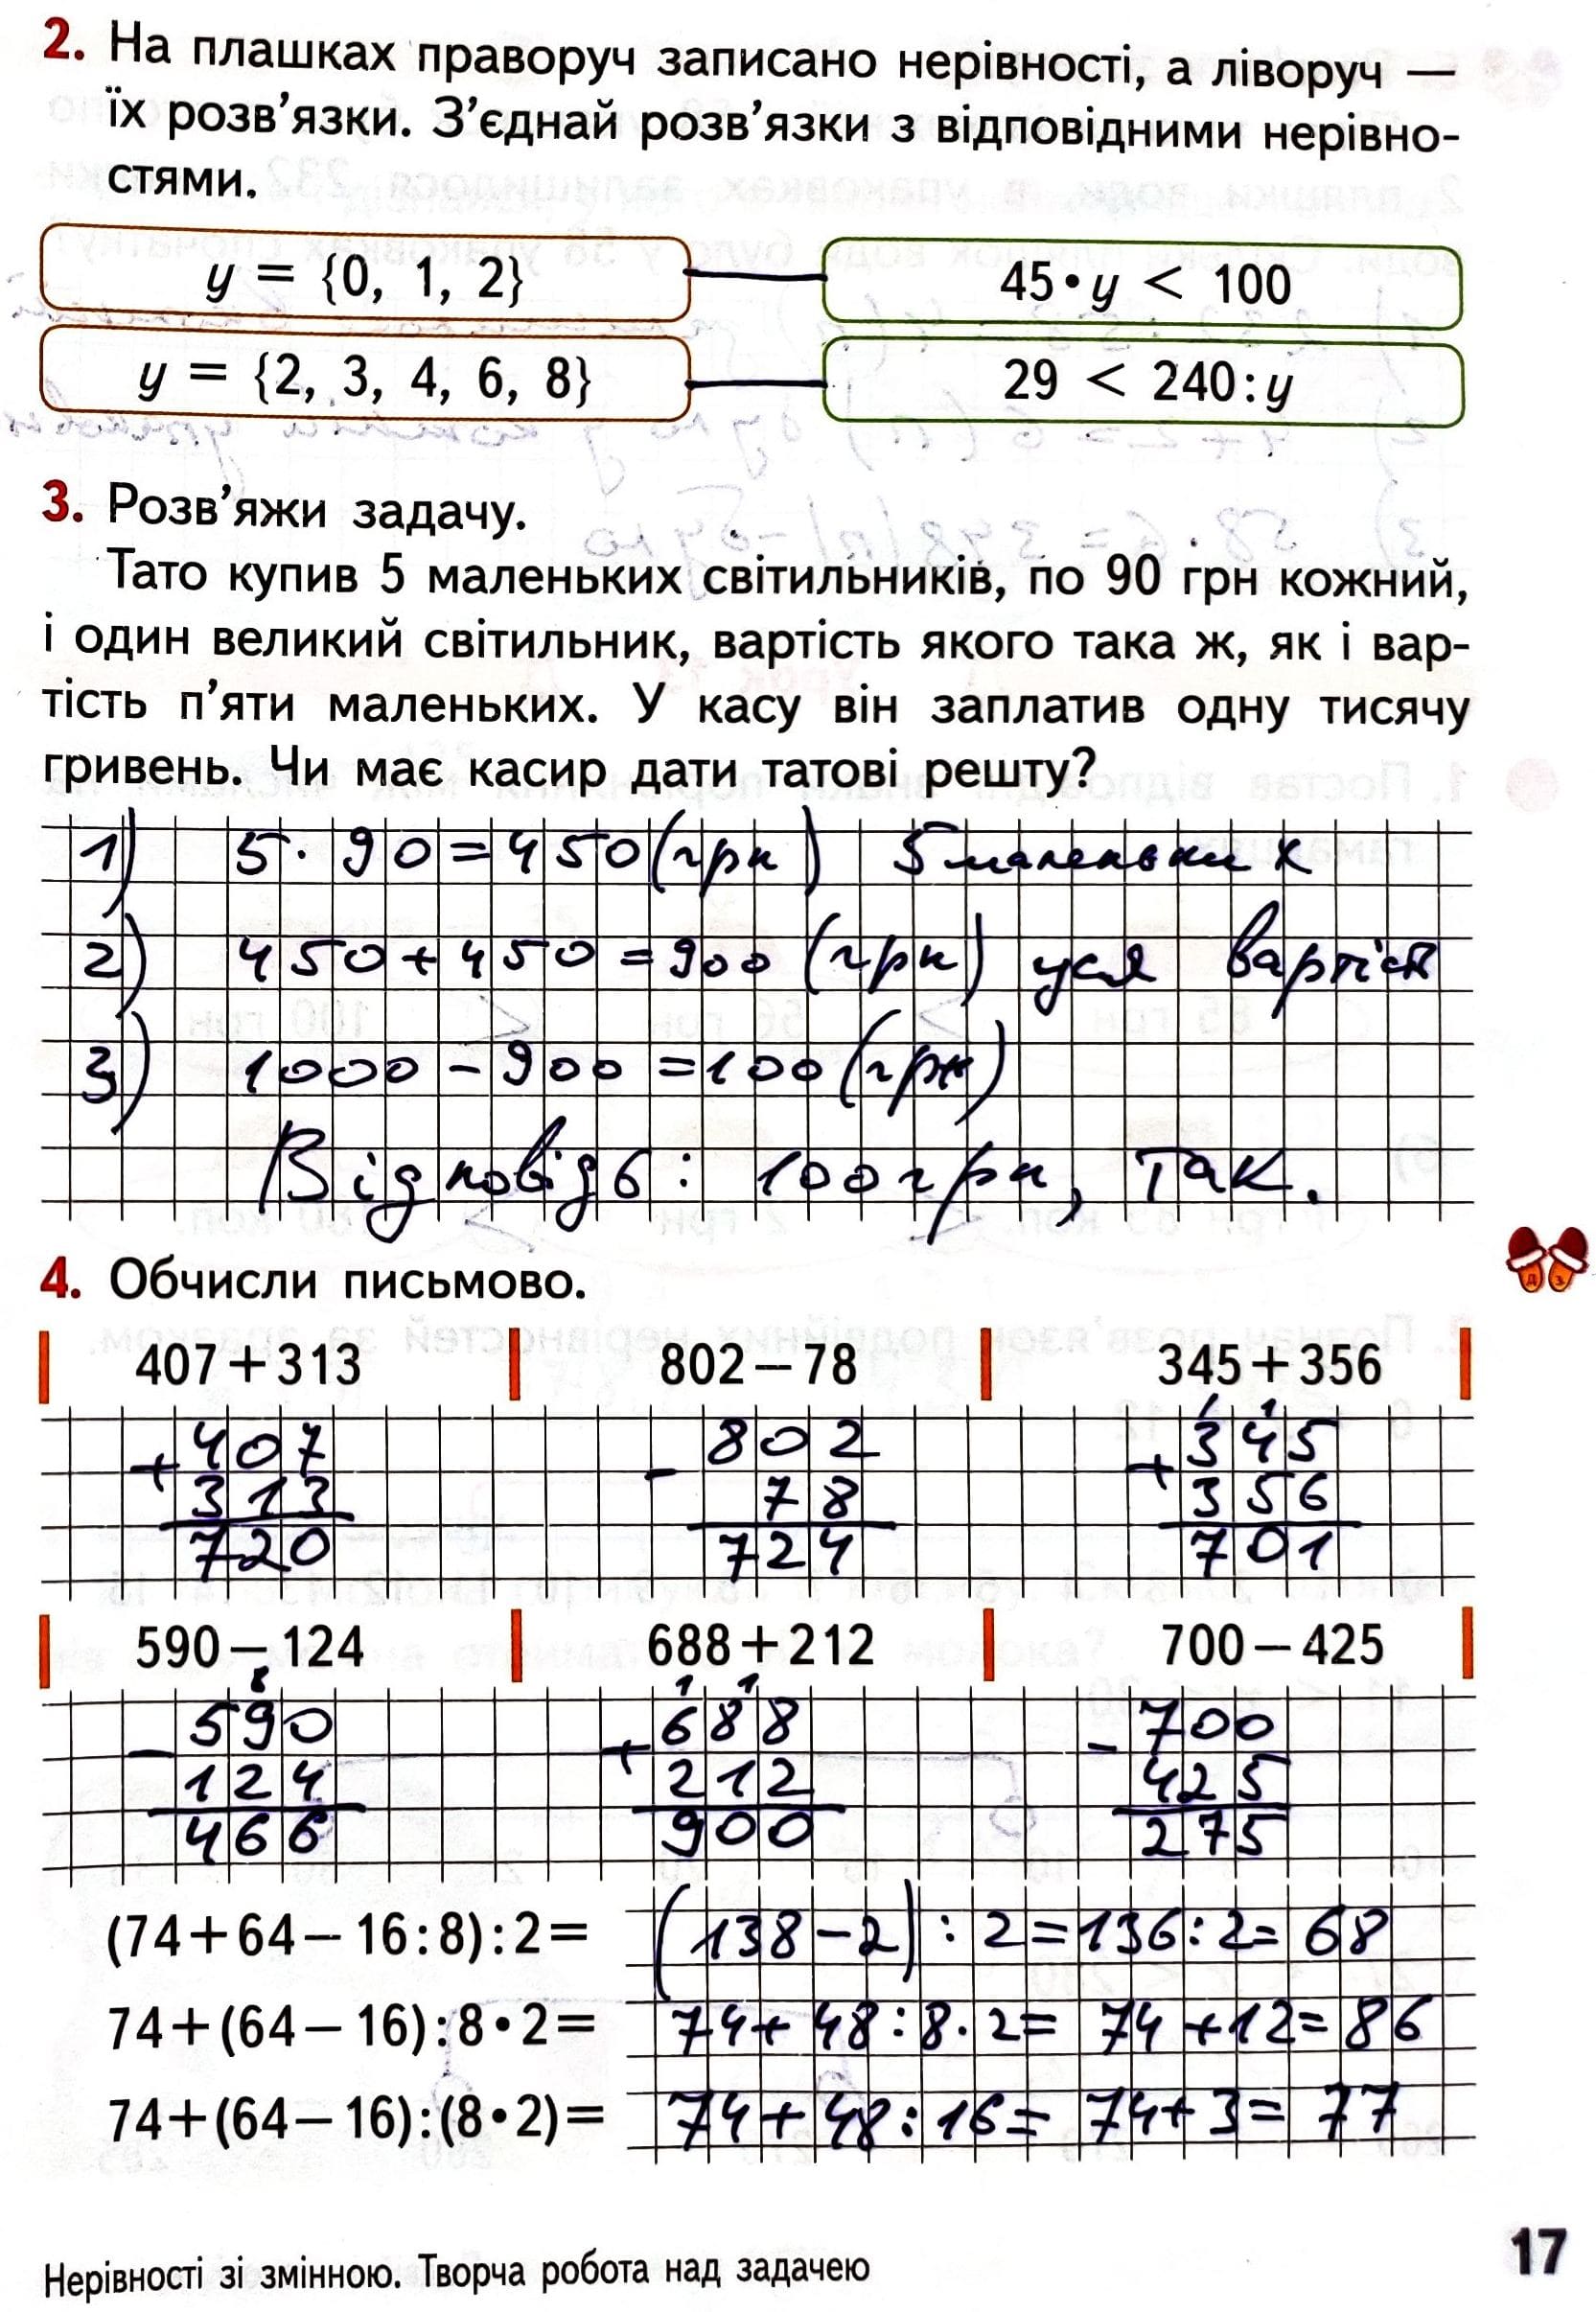 2. На плашках праворуч записано нерівності, а ліворуч —
їх розв’язки. З’єднай розв’язки з відповідними нерівно-
стями.
y = {0, 1, 2}
45•y < 100
y = {2, 3, 4, 6, 8}
29 < 240:y
3. Розв’яжи задачу.
Тато купив 5 маленьких світильників, по 90 грн кожний,
і один великий світильник, вартість якого така ж, як і вар-
тість п’яти маленьких. У касу він заплатив одну тисячу
гривень. Чи має касир дати татові решту?
1) 5·90=450(грн) 5 маленьких
2) 450+450=900 (грн) уся вартість
3) 1000-900=100(грн)
Відповідь: 100грн, так.
4. Обчисли письмово.
407+313 802–78 345+356
1 1
+ 407 - 802 + 345
313 78 356
720 724 701
590–124 688+212 700–425
8 1 1
- 590 + 688 - 700
124 212 425
466 900 275
(74+64–16:8):2= (138-2):2=136:2=68
74+(64–16):8•2= 74+48:8·2=74+12=86
74+(64–16):(8•2)= 74+48:16=74+3=77
Нерівності зі змінною. Творча робота над задачею
17